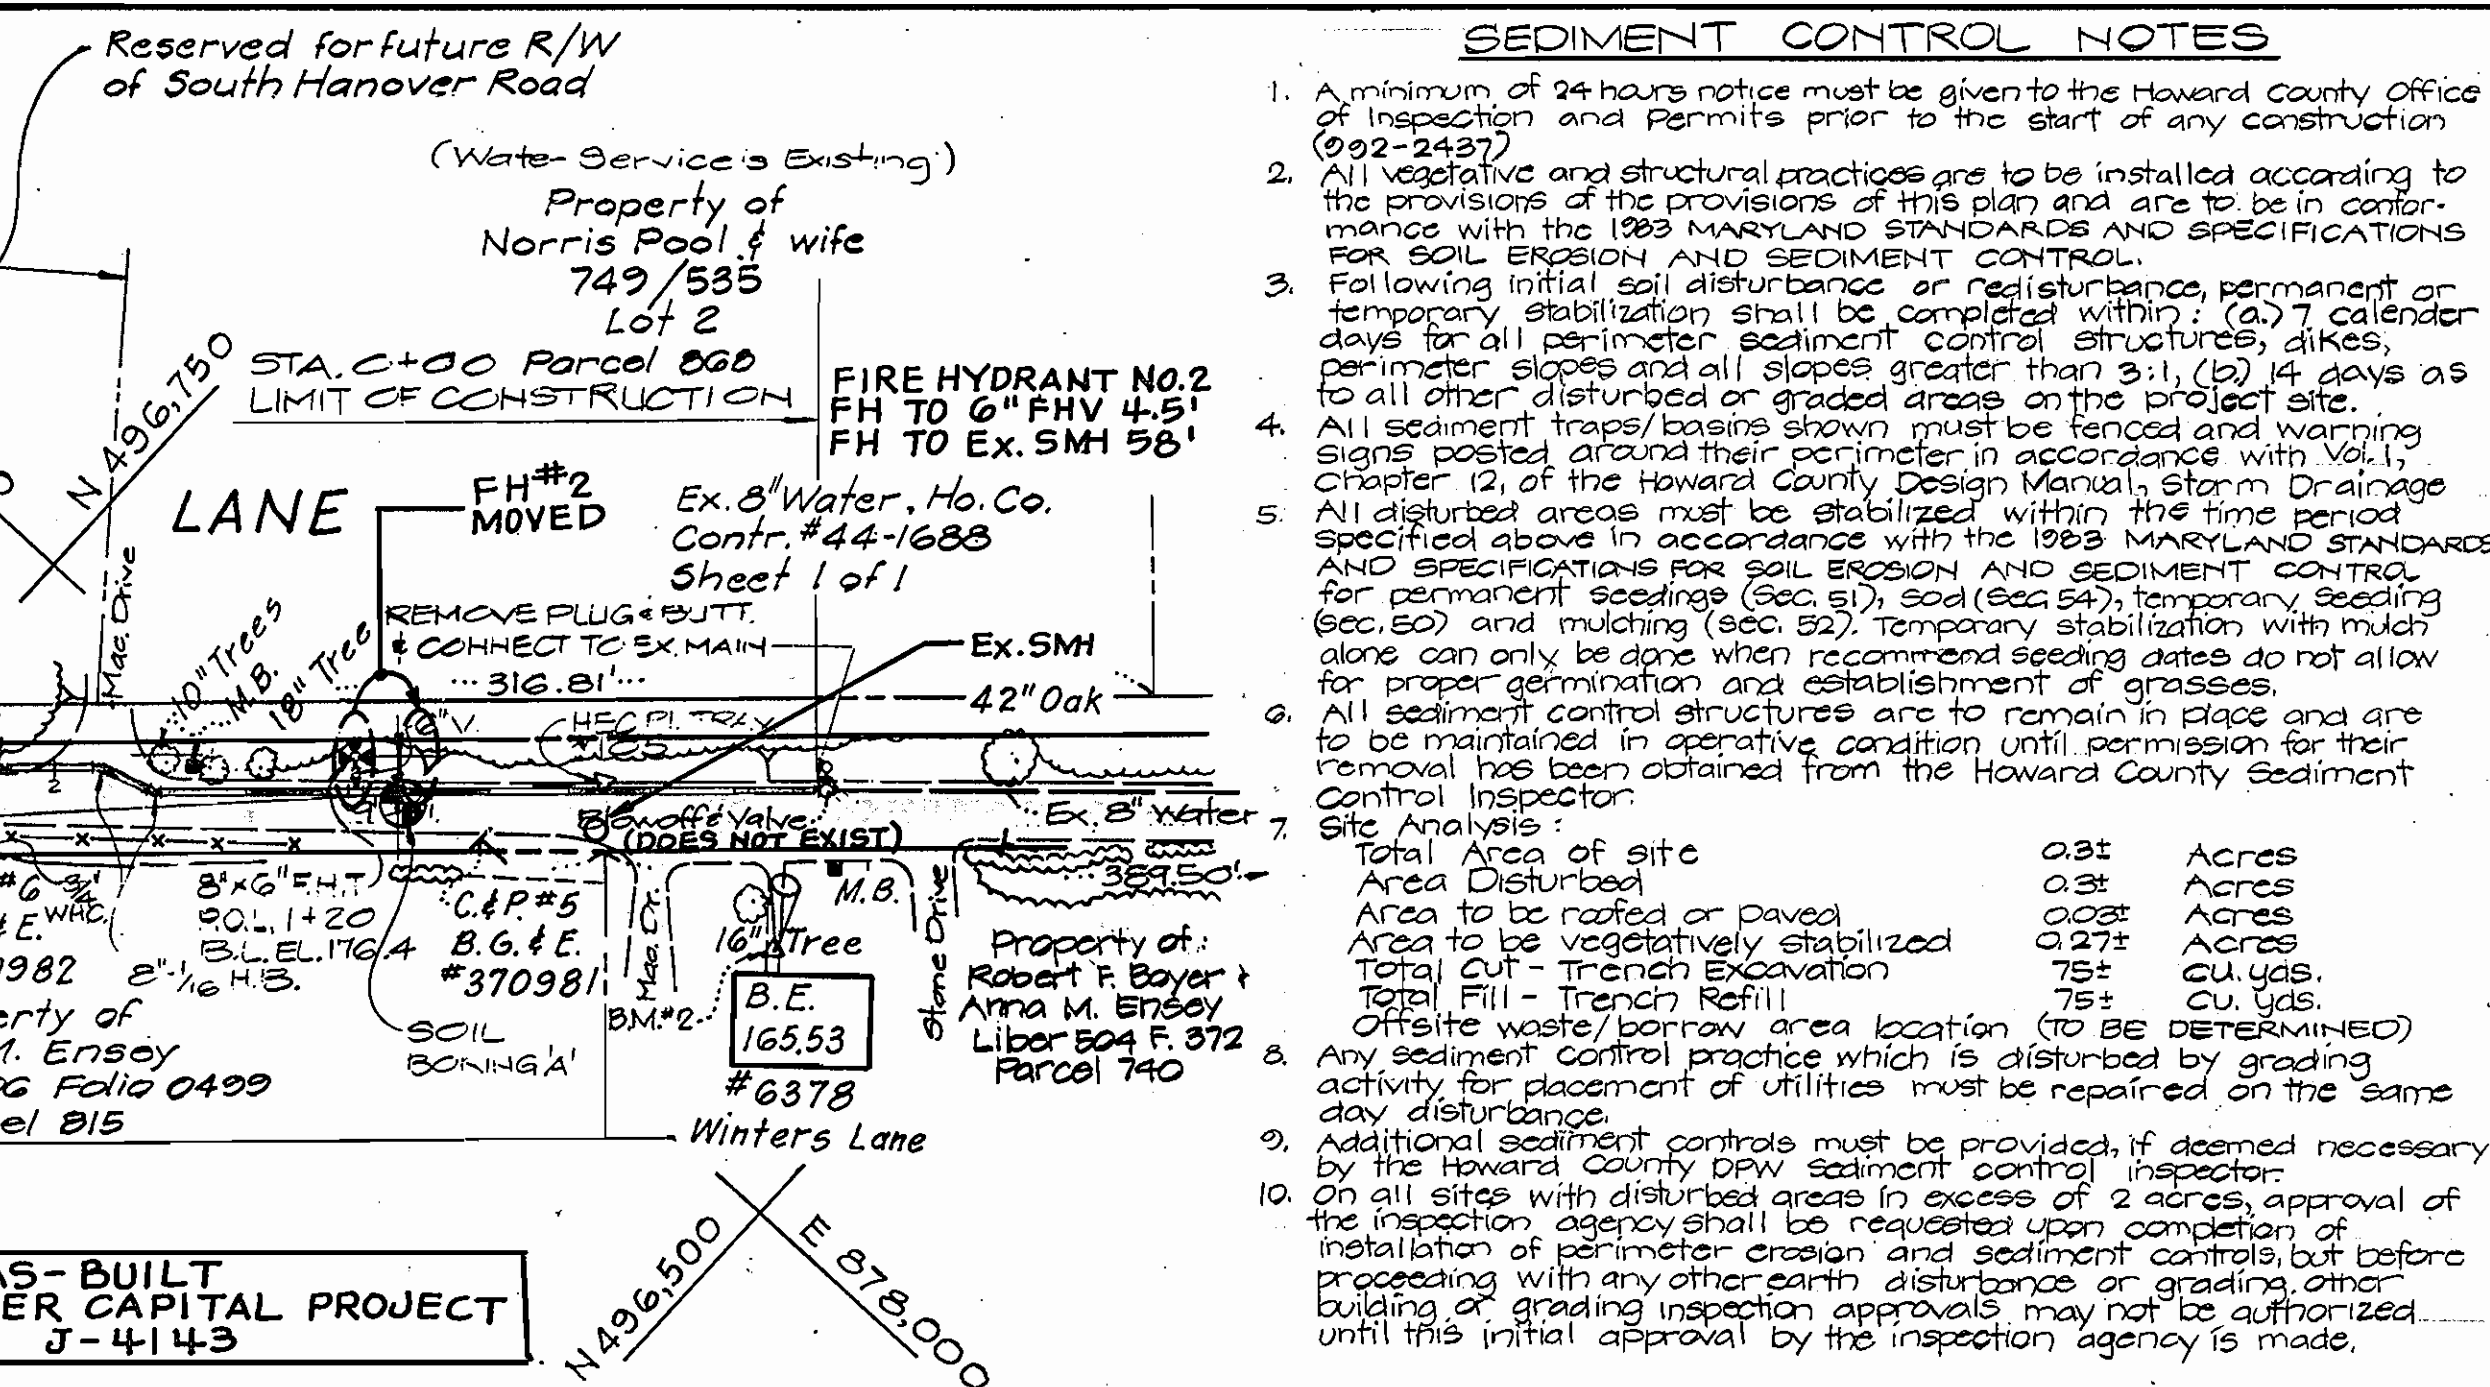 Reserved for future R/W
of South Hanover Road
(Wate- Service is Existing)
Property of
Norris Pool & wife
749/535
Lot 2
STA. C+00 Parcel 868
LIMIT OF CONSTRUCTION
FIRE HYDRANT NO.2
FH TO 6" FHV 4.5'
FH TO Ex. SMH 58'
N 496,750
LANE
FH#2
MOVED
Ex. 8" Water, Ho. Co.
Contr. #44-1688
Sheet 1 of 1
Mac. Drive
10" Trees
M.B.
18" Tree
REMOVE PLUG & BUTT.
& CONNECT TO EX. MAIN
316.81'
Ex. SMH
42" Oak
Blowoff & Valve
(DOES NOT EXIST)
Ex. 8" Water
389.50'
#6
3/4"
WHC.
& E.
8"x6" F.H.T
P.O.L. 1+20
B.L. EL. 176.4
8"-1/16 H.B.
C. & P. #5
B.G. & E.
#370981
Mac. Dr.
M.B.
16" Tree
B.M. #2
B.E.
165.53
#6378
Winters Lane
Stone Drive
Property of:
Robert F. Boyer &
Anna M. Ensey
Liber 504 F. 372
Parcel 740
982
erty of
M. Ensey
06 Folio 0499
el 815
SOIL
BORING 'A'
N 496,500
E 878,000
AS-BUILT
ER CAPITAL PROJECT
J-4143
SEDIMENT CONTROL NOTES
1. A minimum of 24 hours notice must be given to the Howard County Office
of Inspection and Permits prior to the start of any construction
(992-2437)
2. All vegetative and structural practices are to be installed according to
the provisions of the provisions of this plan and are to be in confor-
mance with the 1983 MARYLAND STANDARDS AND SPECIFICATIONS
FOR SOIL EROSION AND SEDIMENT CONTROL.
3. Following initial soil disturbance or redisturbance, permanent or
temporary stabilization shall be completed within: (a.) 7 calender
days for all perimeter sediment control structures, dikes,
perimeter slopes and all slopes greater than 3:1, (b.) 14 days as
to all other disturbed or graded areas on the project site.
4. All sediment traps/basins shown must be fenced and warning
signs posted around their perimeter in accordance with Vol. 1,
Chapter 12, of the Howard County Design Manual, Storm Drainage
5. All disturbed areas must be stabilized within the time period
specified above in accordance with the 1983 MARYLAND STANDARDS
AND SPECIFICATIONS FOR SOIL EROSION AND SEDIMENT CONTROL
for permanent seedings (Sec. 51), sod (Sec 54), temporary seeding
(Sec. 50) and mulching (sec. 52). Temporary stabilization with mulch
alone can only be done when recommend seeding dates do not allow
for proper germination and establishment of grasses.
6. All sediment control structures are to remain in place and are
to be maintained in operative condition until permission for their
removal has been obtained from the Howard County Sediment
Control Inspector.
7. Site Analysis:
Total Area of site 0.3± Acres
Area Disturbed 0.3± Acres
Area to be roofed or paved 0.03± Acres
Area to be vegetatively stabilized 0.27± Acres
Total Cut - Trench Excavation 75± cu. yds.
Total Fill - Trench Refill 75± cu. yds.
Offsite waste/borrow area location (TO BE DETERMINED)
8. Any sediment control practice which is disturbed by grading
activity for placement of utilities must be repaired on the same
day disturbance.
9. Additional sediment controls must be provided, if deemed necessary
by the Howard County DPW sediment control inspector.
10. On all sites with disturbed areas in excess of 2 acres, approval of
the inspection agency shall be requested upon completion of
installation of perimeter erosion and sediment controls, but before
proceeding with any other earth disturbance or grading. other
building or grading inspection approvals may not be authorized
until this initial approval by the inspection agency is made.